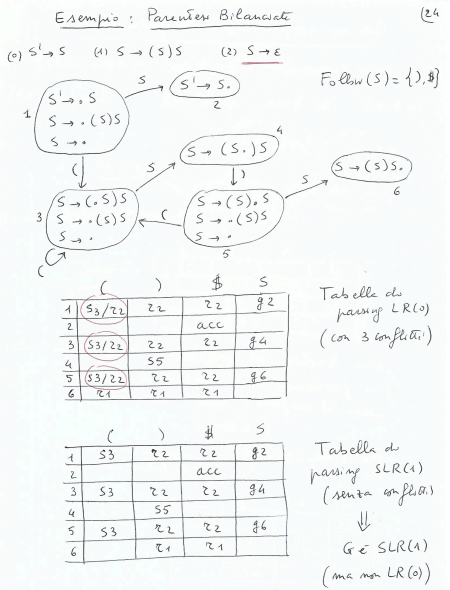 Esempio : Parentesi Bilanciate
(24
(0) S' → S (1) S → (S)S (2) S → ε
Follow(S) = { ), $}
1
S' → . S
S → . (S)S
S → .
S
S' → S.
2
(
S
4
S → (S.)S
)
3
S → (.S)S
S → . (S)S
S → .
(
(
S → (S).S
S → . (S)S
S → .
5
S
S → (S)S.
6
( ) $ S
1 S3/r2 r2 r2 g2
2 acc
3 S3/r2 r2 r2 g4
4 S5
5 S3/r2 r2 r2 g6
6 r1 r1 r1
Tabella di
parsing LR(0)
(con 3 conflitti)
( ) $ S
1 S3 r2 r2 g2
2 acc
3 S3 r2 r2 g4
4 S5
5 S3 r2 r2 g6
6 r1 r1
Tabella di
parsing SLR(1)
(senza conflitti)
⇓
G è SLR(1)
(ma non LR(0))